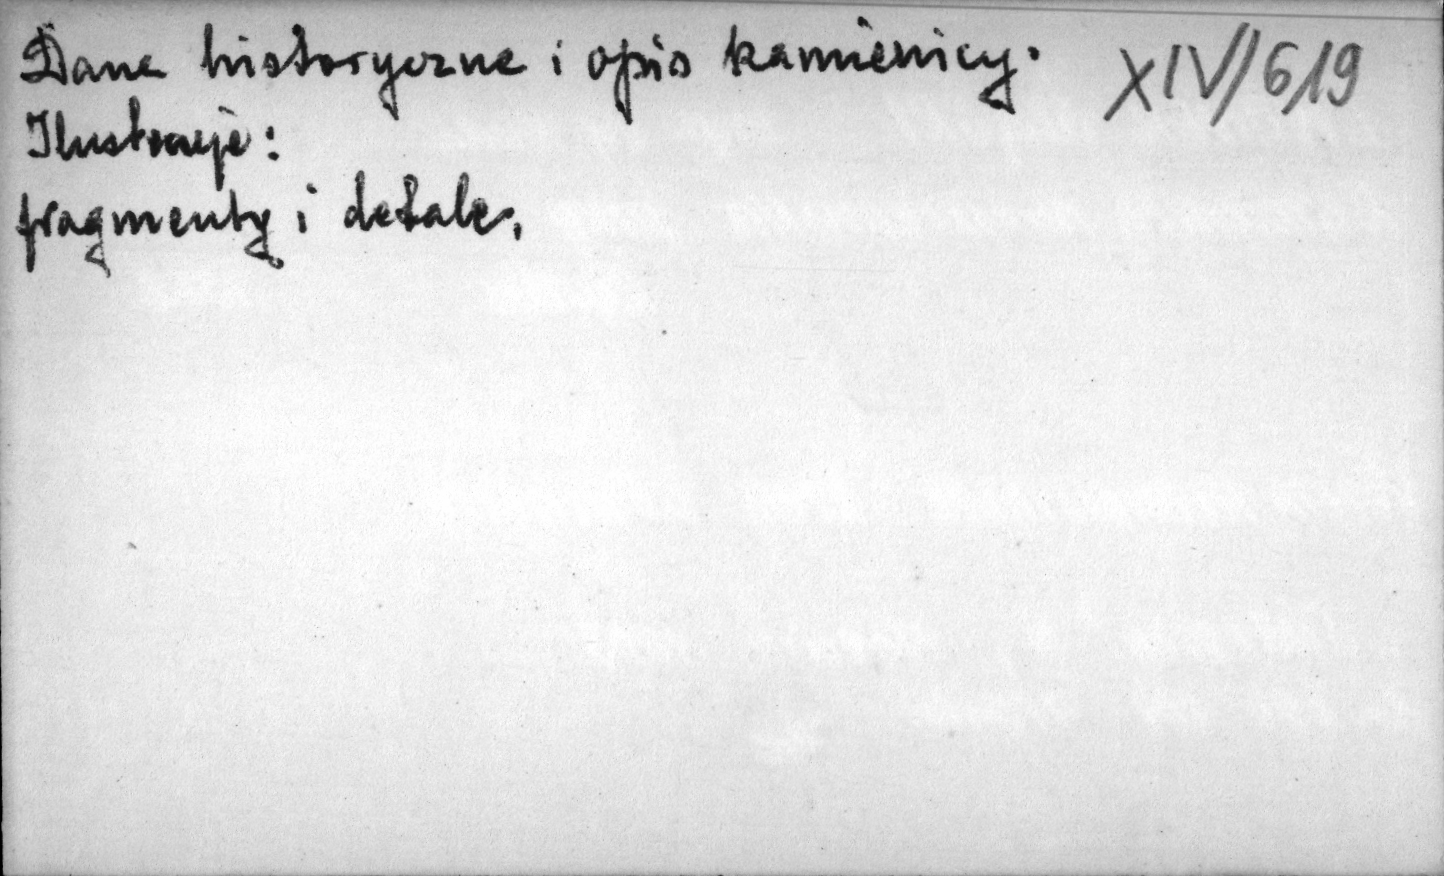 Dane historyczne i opis kamienicy. XIV/619
Ilustracje:
fragmenty i detale.